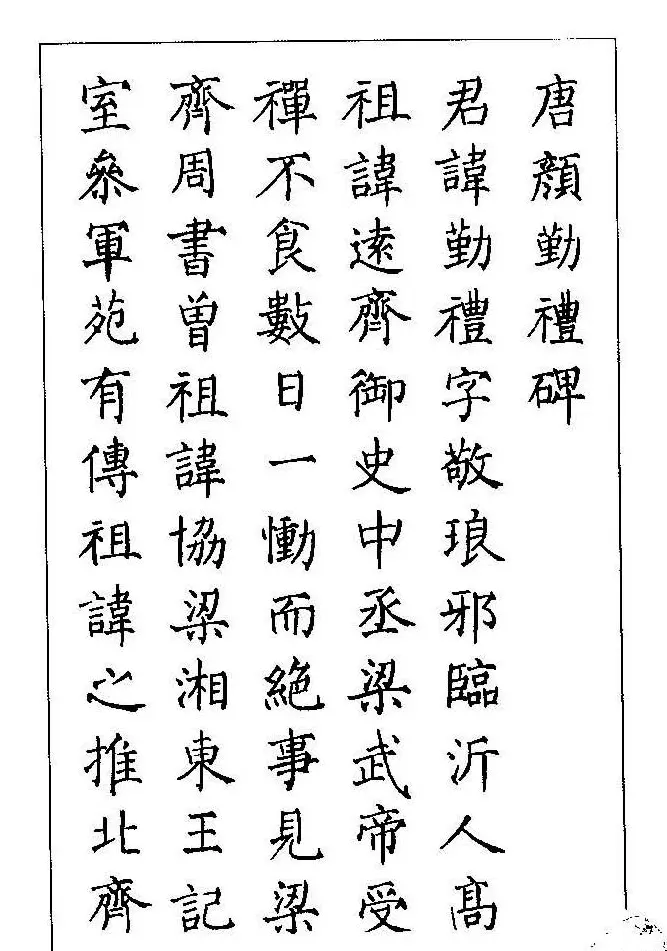 唐顏勤禮碑
君諱勤禮字敬琅邪臨沂人高
祖諱遠齊御史中丞梁武帝受
禪不食數日一慟而絕事見梁
齊周書曾祖諱協梁湘東王記
室叅軍苑有傳祖諱之推北齊